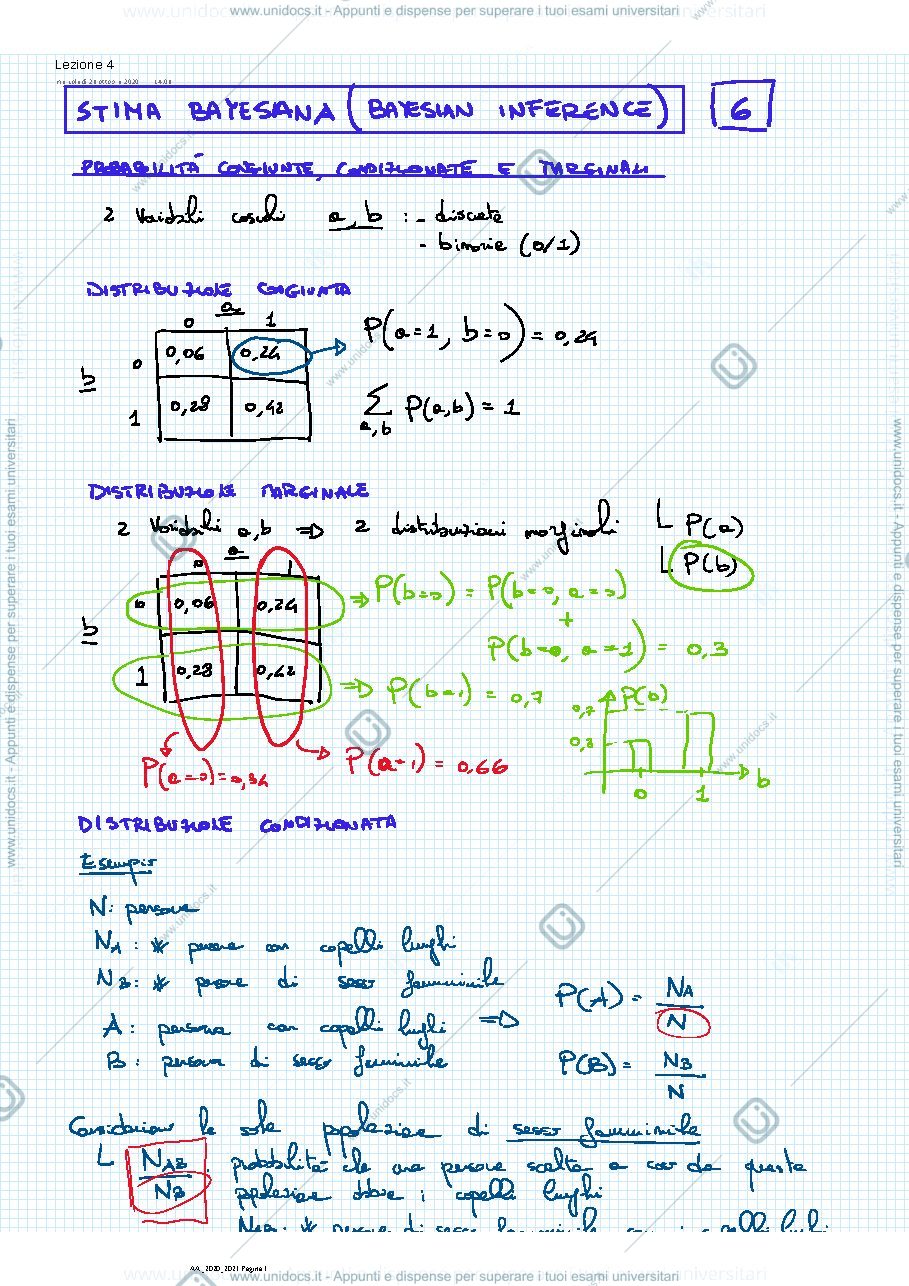 www.unidocs.it - Appunti e dispense per superare i tuoi esami universitari
Lezione 4
mercoledì 28 ottobre 2020 14:00
STIMA BAYESIANA (BAYESIAN INFERENCE) 6
PROBABILITÀ CONGIUNTE, CONDIZIONATE E MARGINALI
2 Variabili casuali a, b : - discrete
- binarie (0/1)
DISTRIBUZIONE CONGIUNTA
a
0 1
b 0 0,06 0,24 P(a=1, b=0) = 0,24
1 0,28 0,42 Σ P(a,b) = 1
a,b
DISTRIBUZIONE MARGINALE
2 Variabili a,b => 2 distribuzioni marginali L P(a)
L P(b)
a
0 1
b 0 0,06 0,24 => P(b=0) = P(b=0, a=0)
+
P(b=0, a=1) = 0,3
1 0,28 0,42 => P(b=1) = 0,7
P(b)
0,7
0,3
0 1 b
P(a=0)=0,34 P(a=1) = 0,66
DISTRIBUZIONE CONDIZIONATA
Esempio
N: persone
NA : # persone con capelli lunghi
NB : # persone di sesso femminile
A : persona con capelli lunghi => P(A) = NA / N
B : persona di sesso femminile P(B) = NB / N
Consideriamo la sola popolazione di sesso femminile
L NAB / NB probabilità che una persona scelta a caso da questa
popolazione abbia i capelli lunghi
NAB: # persone di sesso femminile con i capelli lunghi
AA_2020_2021 Pagina 1
www.unidocs.it - Appunti e dispense per superare i tuoi esami universitari